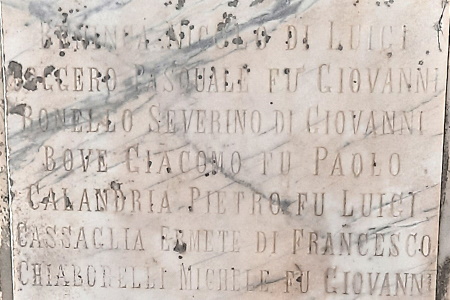 NICOLÒ DI LUIGI
PASQUALE FU GIOVANNI
BONELLO SEVERINO DI GIOVANNI
BOVE GIACOMO FU PAOLO
CALANDRIA PIETRO FU LUIGI
CASSAGLIA ERMETE DI FRANCESCO
CHIABORELLI MICHELE FU GIOVANNI